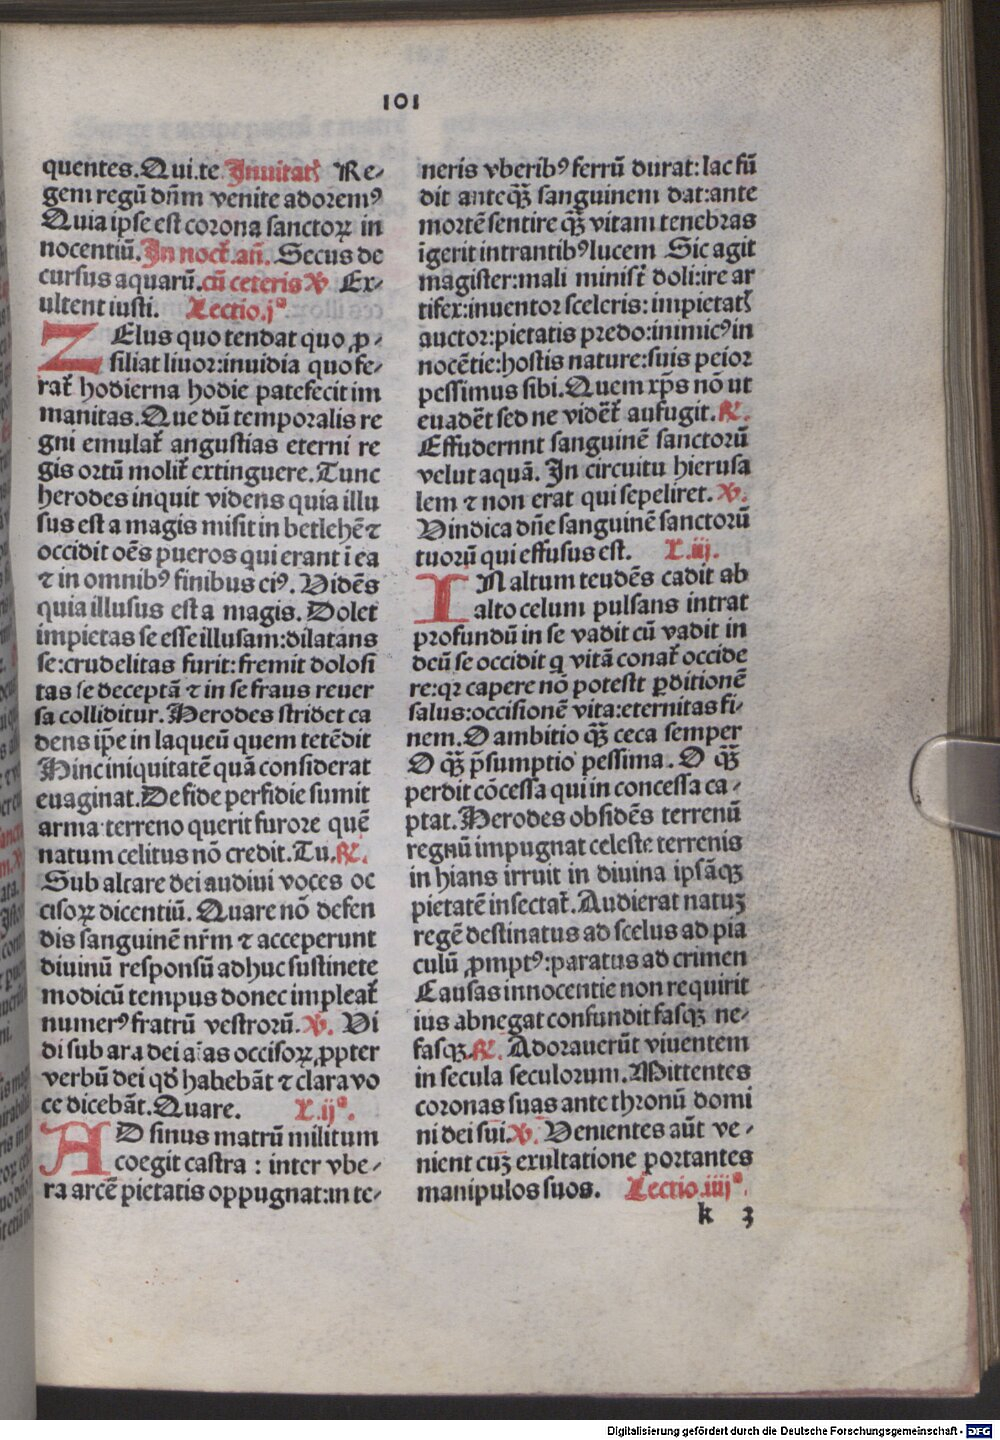 101
quentes.Qui.te Inuitatꝭ Re⸗
gem regū dn̄m venite adoremꝰ
Quia ipse est corona sanctoꝝ in
nocentiū. In noct̄.an̄. Secus de
cursus aquarū.cū ceteris ℣ Ex⸗
ultent iusti. Lectio.jª
ZElus quo tendat quo ꝓ⸗
siliat liuor:inuidia quo fe⸗
rat̄ hodierna hodie patefecit im
manitas.Que dū temporalis re
gni emulat̄ angustias eterni re
gis ortū molit̄ extinguere.Tunc
herodes inquit videns quia illu
sus est a magis misit in betlehē ⁊
occidit oēs pueros qui erant ī ea
⁊ in omnibꝰ finibus eiꝰ. Vidēs
quia illusus est a magis. Dolet
impietas se esse illusam:dilatans
se:crudelitas furit:fremit dolosi
tas se deceptā ⁊ in se fraus reuer
sa colliditur.Herodes stridet ca
dens ip̄e in laqueū quem tetēdit
Hinc iniquitatē quā considerat
euaginat.De fide perfidie sumit
arma terreno querit furore quē
natum celitus nō credit.Tu.℟.
Sub altare dei audiui voces oc
cisoꝝ dicentiū. Quare nō defen
dis sanguinē nr̄m ⁊ acceperunt
diuinū responsū adhuc sustinete
modicū tempus donec impleat̄
numerꝰ fratrū vestrorū.℣. Vi
di sub ara dei aīas occisoꝝ ꝓpter
verbū dei qd̄ habebāt ⁊ clara vo
ce dicebāt.Quare. L.ijª.
AD sinus matrū militum
coegit castra : inter vbe⸗
ra arcē pietatis oppugnat:in te⸗
neris vberibꝰ ferrū durat:lac fū
dit anteqꝫ̄ sanguinem dat:ante
mortē sentire qꝫ̄ vitam tenebras
īgerit intrantibꝰ lucem Sic agit
magister:mali minist̄ doli:ire ar
tifex:inuentor sceleris: impietatꝭ
auctor:pietatis predo:inimicꝰ in
nocētie:hostis nature:suis peior
pessimus sibi.Quem xp̄s nō ut
euadēt sed ne vidēt̄ aufugit.℟.
Effudernnt sanguinē sanctorū
velut aquā. In circuitu hierusa
lem ⁊ non erat qui sepeliret.℣.
Vindica dn̄e sanguinē sanctorū
tuorū qui effusus est. L.iij.
IN altum teudēs cadit ab
alto celum pulsans intrat
profundū in se vadit cū vadit in
deū se occidit q vitā conat̄ occide
re:qꝛ capere nō potestt ꝑditionē
salus:occisionē vita:eternitas fi⸗
nem.O ambitio qꝫ̄ ceca semper
O qꝫ̄ p̄sumptio pessima. O qꝫ̄
perdit cōcessa qui in concessa ca⸗
ptat.Herodes obsidēs terrenū
regnū impugnat celeste terrenis
in hians irruit in diuina ipsāqꝫ
pietatē insectat̄.Audierat natuꝫ
regē destinatus ad scelus ad pia
culū ꝓmptꝰ:paratus ad crimen
Causas innocentie non requirit
ius abnegat confundit fasqꝫ ne⸗
fasqꝫ.℟. Adorauerūt viuentem
in secula seculorum.Mittentes
coronas suas ante thronū domi
ni dei sui.℣. Venientes aūt ve⸗
nient cuꝫ exultatione portantes
manipulos suos. Lectio.iiijª.
k 3
Digitalisierung gefördert durch die Deutsche Forschungsgemeinschaft - DFG